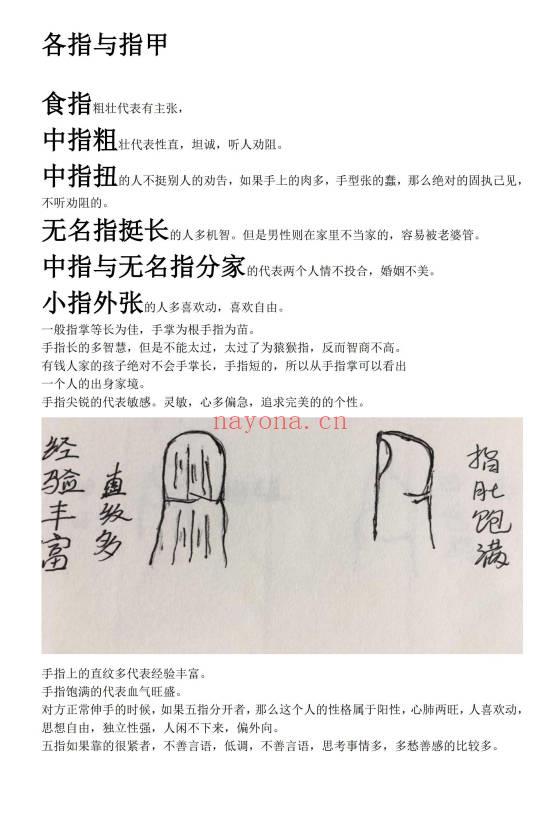 各指与指甲
食指粗壮代表有主张，
中指粗壮代表性直，坦诚，听人劝阻。
中指扭的人不挺别人的劝告，如果手上的肉多，手型张的蠢，那么绝对的固执己见，
不听劝阻的。
无名指挺长的人多机智。但是男性则在家里不当家的，容易被老婆管。
中指与无名指分家的代表两个人情不投合，婚姻不美。
小指外张的人多喜欢动，喜欢自由。
一般指掌等长为佳，手掌为根手指为苗。
手指长的多智慧，但是不能太过，太过了为猿猴指，反而智商不高。
有钱人家的孩子绝对不会手掌长，手指短的，所以从手指掌可以看出
一个人的出身家境。
手指尖锐的代表敏感。灵敏，心多偏急，追求完美的的个性。
nayona.cn
经验丰富
直纹多
指肚饱满
手指上的直纹多代表经验丰富。
手指饱满的代表血气旺盛。
对方正常伸手的时候，如果五指分开者，那么这个人的性格属于阳性，心肺两旺，人喜欢动，
思想自由，独立性强，人闲不下来，偏外向。
五指如果靠的很紧者，不善言语，低调，不善言语，思考事情多，多愁善感的比较多。